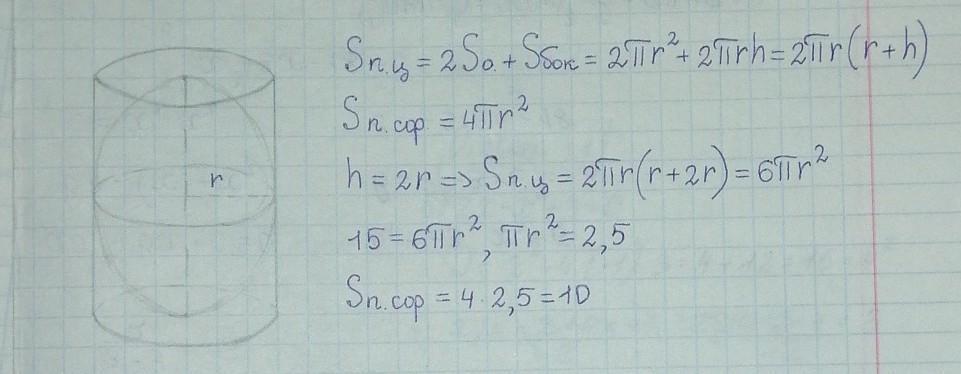 Sп.ц = 2Sо. + Sбок = 2πr² + 2πrh = 2πr(r+h)
Sп.сор = 4πr²
h = 2r => Sп.ц = 2πr(r+2r) = 6πr²
r
15 = 6πr², πr² = 2,5
Sп.сор = 4 · 2,5 = 10